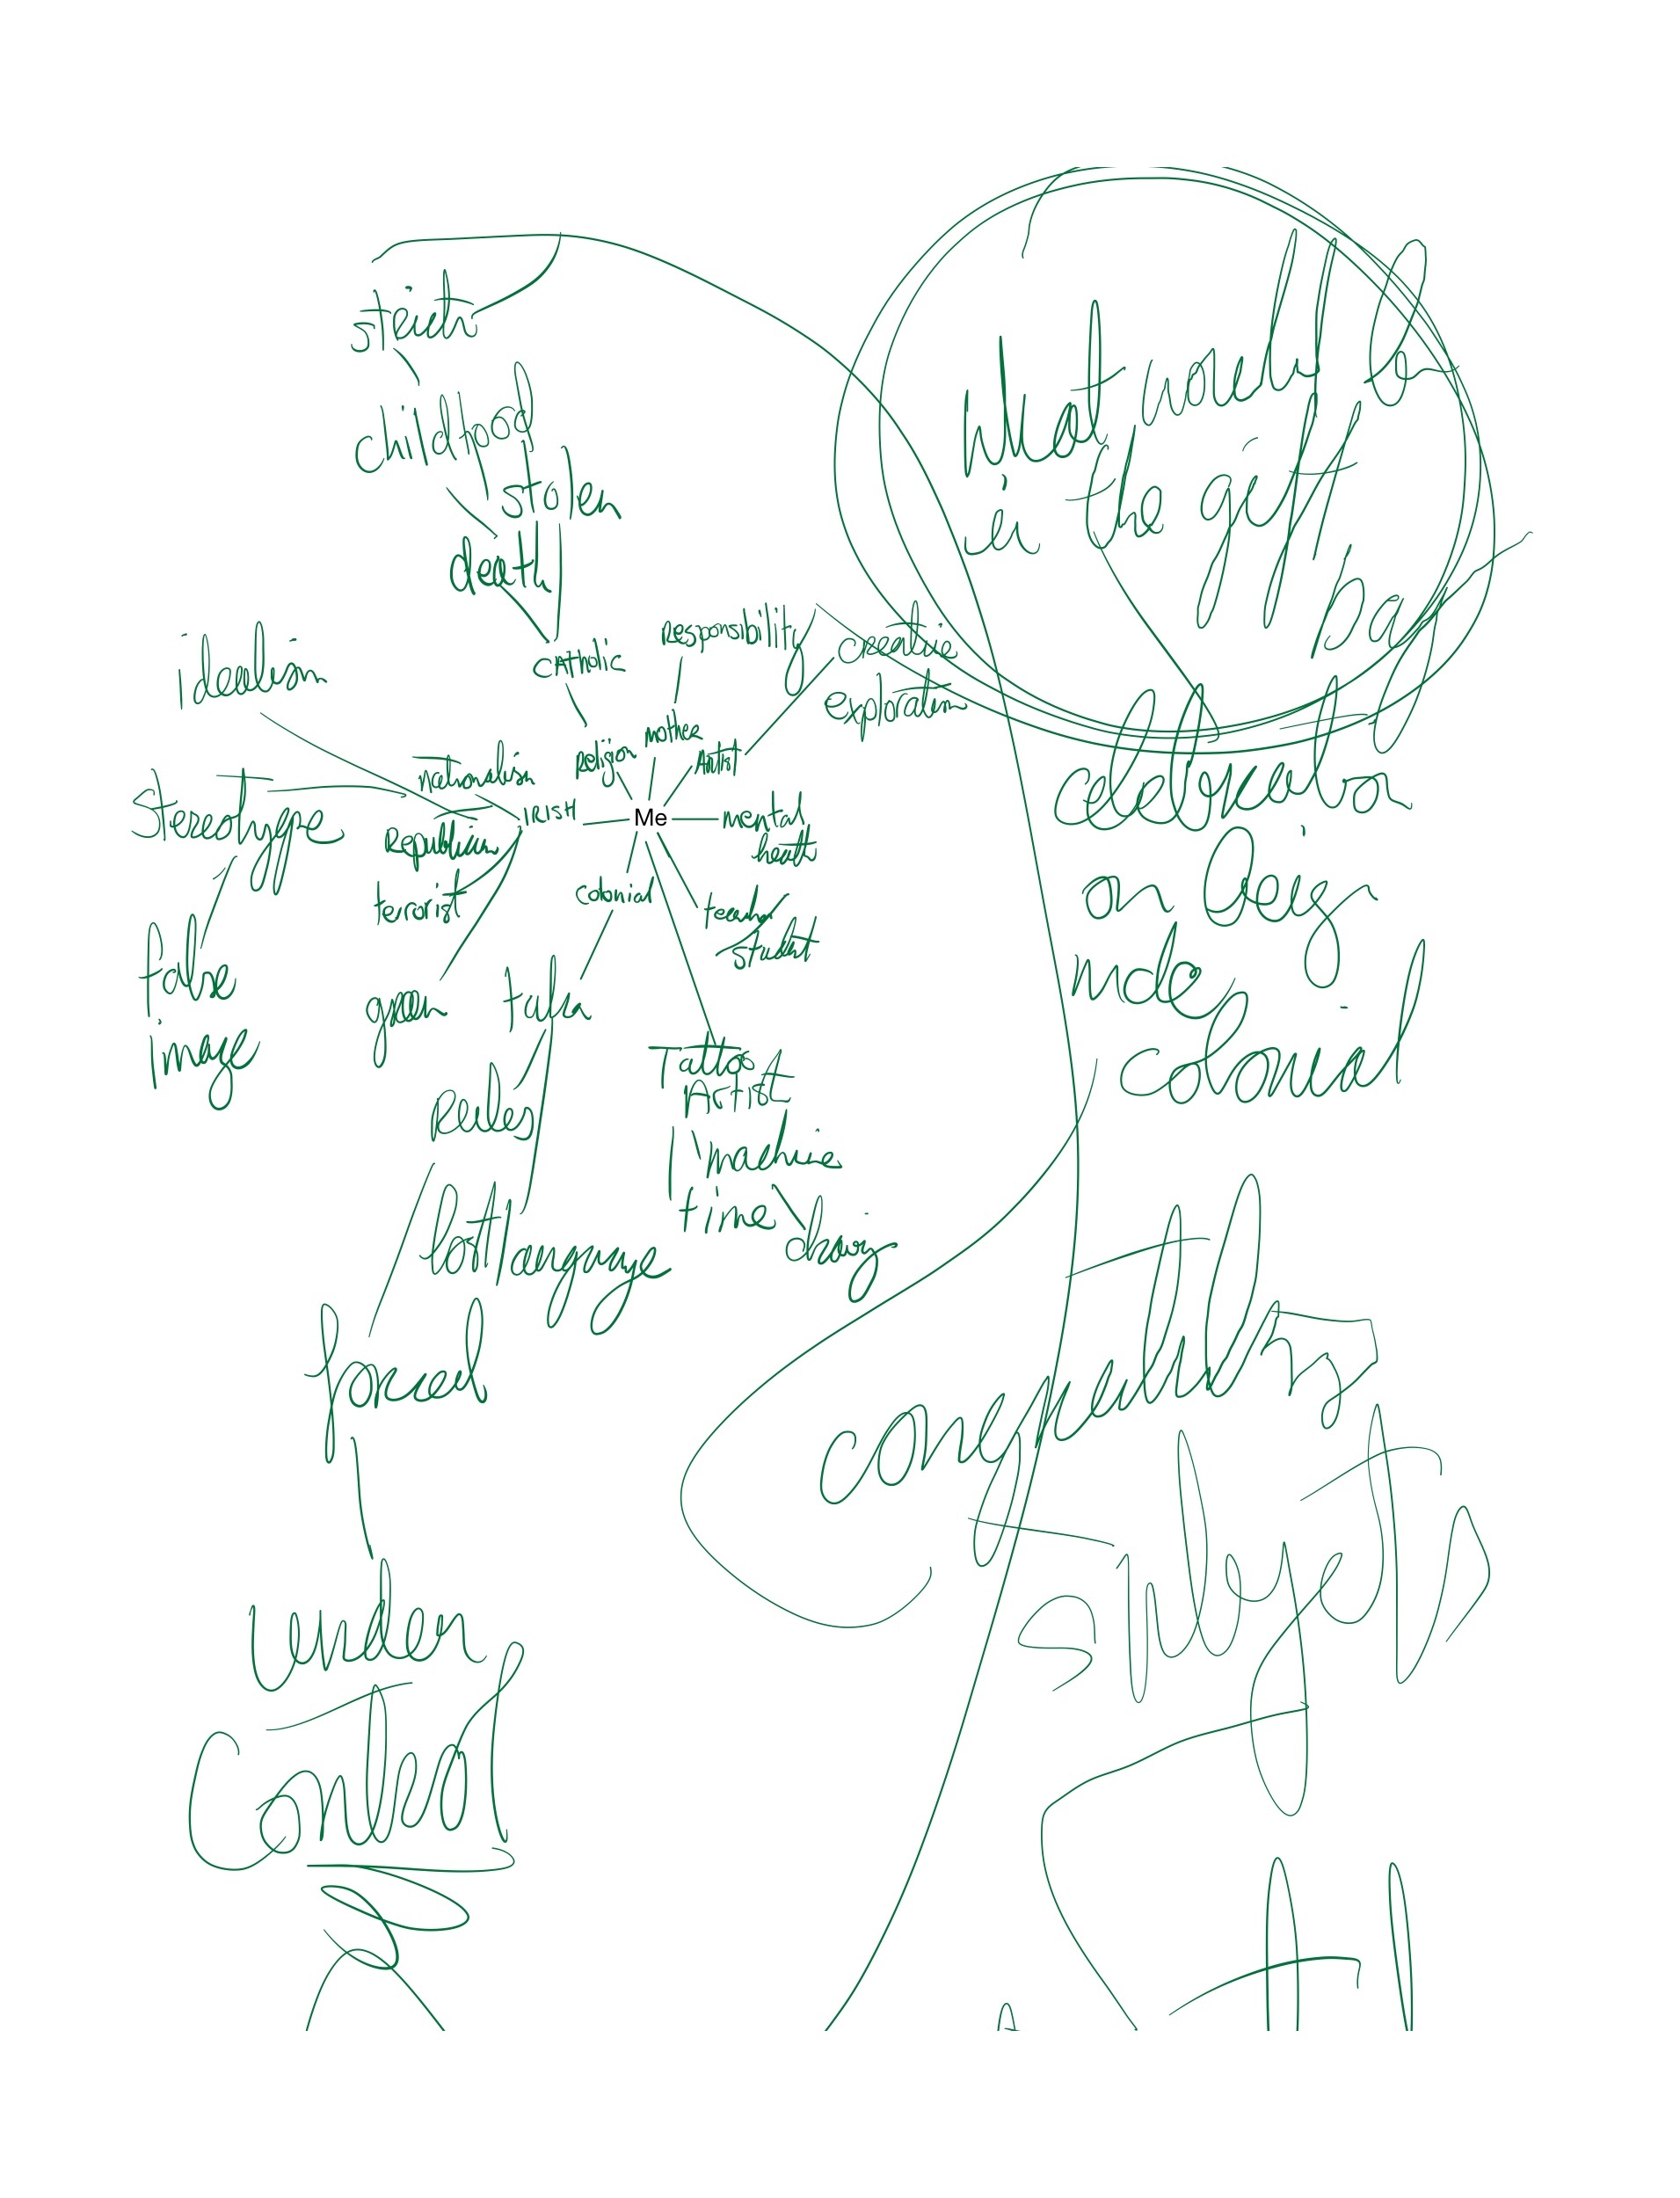 strict
childhood
stolen
death
What would be
in the gift
catholic
responsibility
creative
exploration
idealism
nationalism
religion
mother
Artist
stereotype
IRISH
Me
mental
health
Republican
terrorist
colonial
teacher
student
false
image
green
Tattoo
Artist
machine
time
drawing
lost language
forced
under
Control
on being
colonial
congratulations
subjects